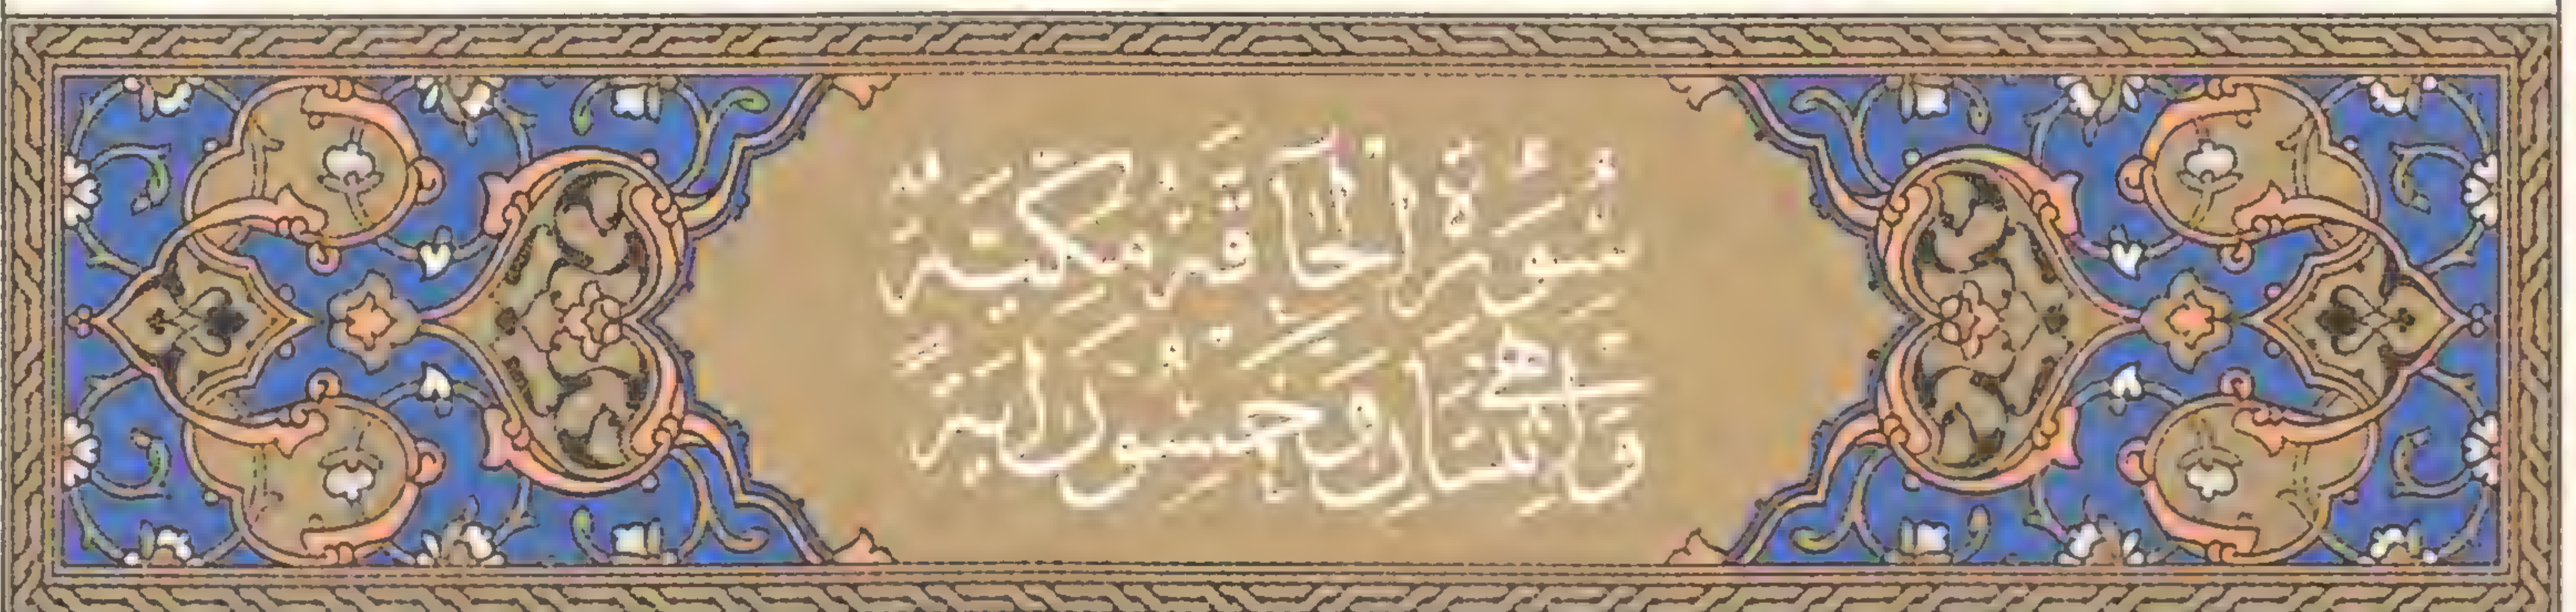 سُورَةُ الْحَآقَّةِ مَكِّيَّةٌ
وَهِيَ اثْنَتَانِ وَخَمْسُونَ اٰيَةً